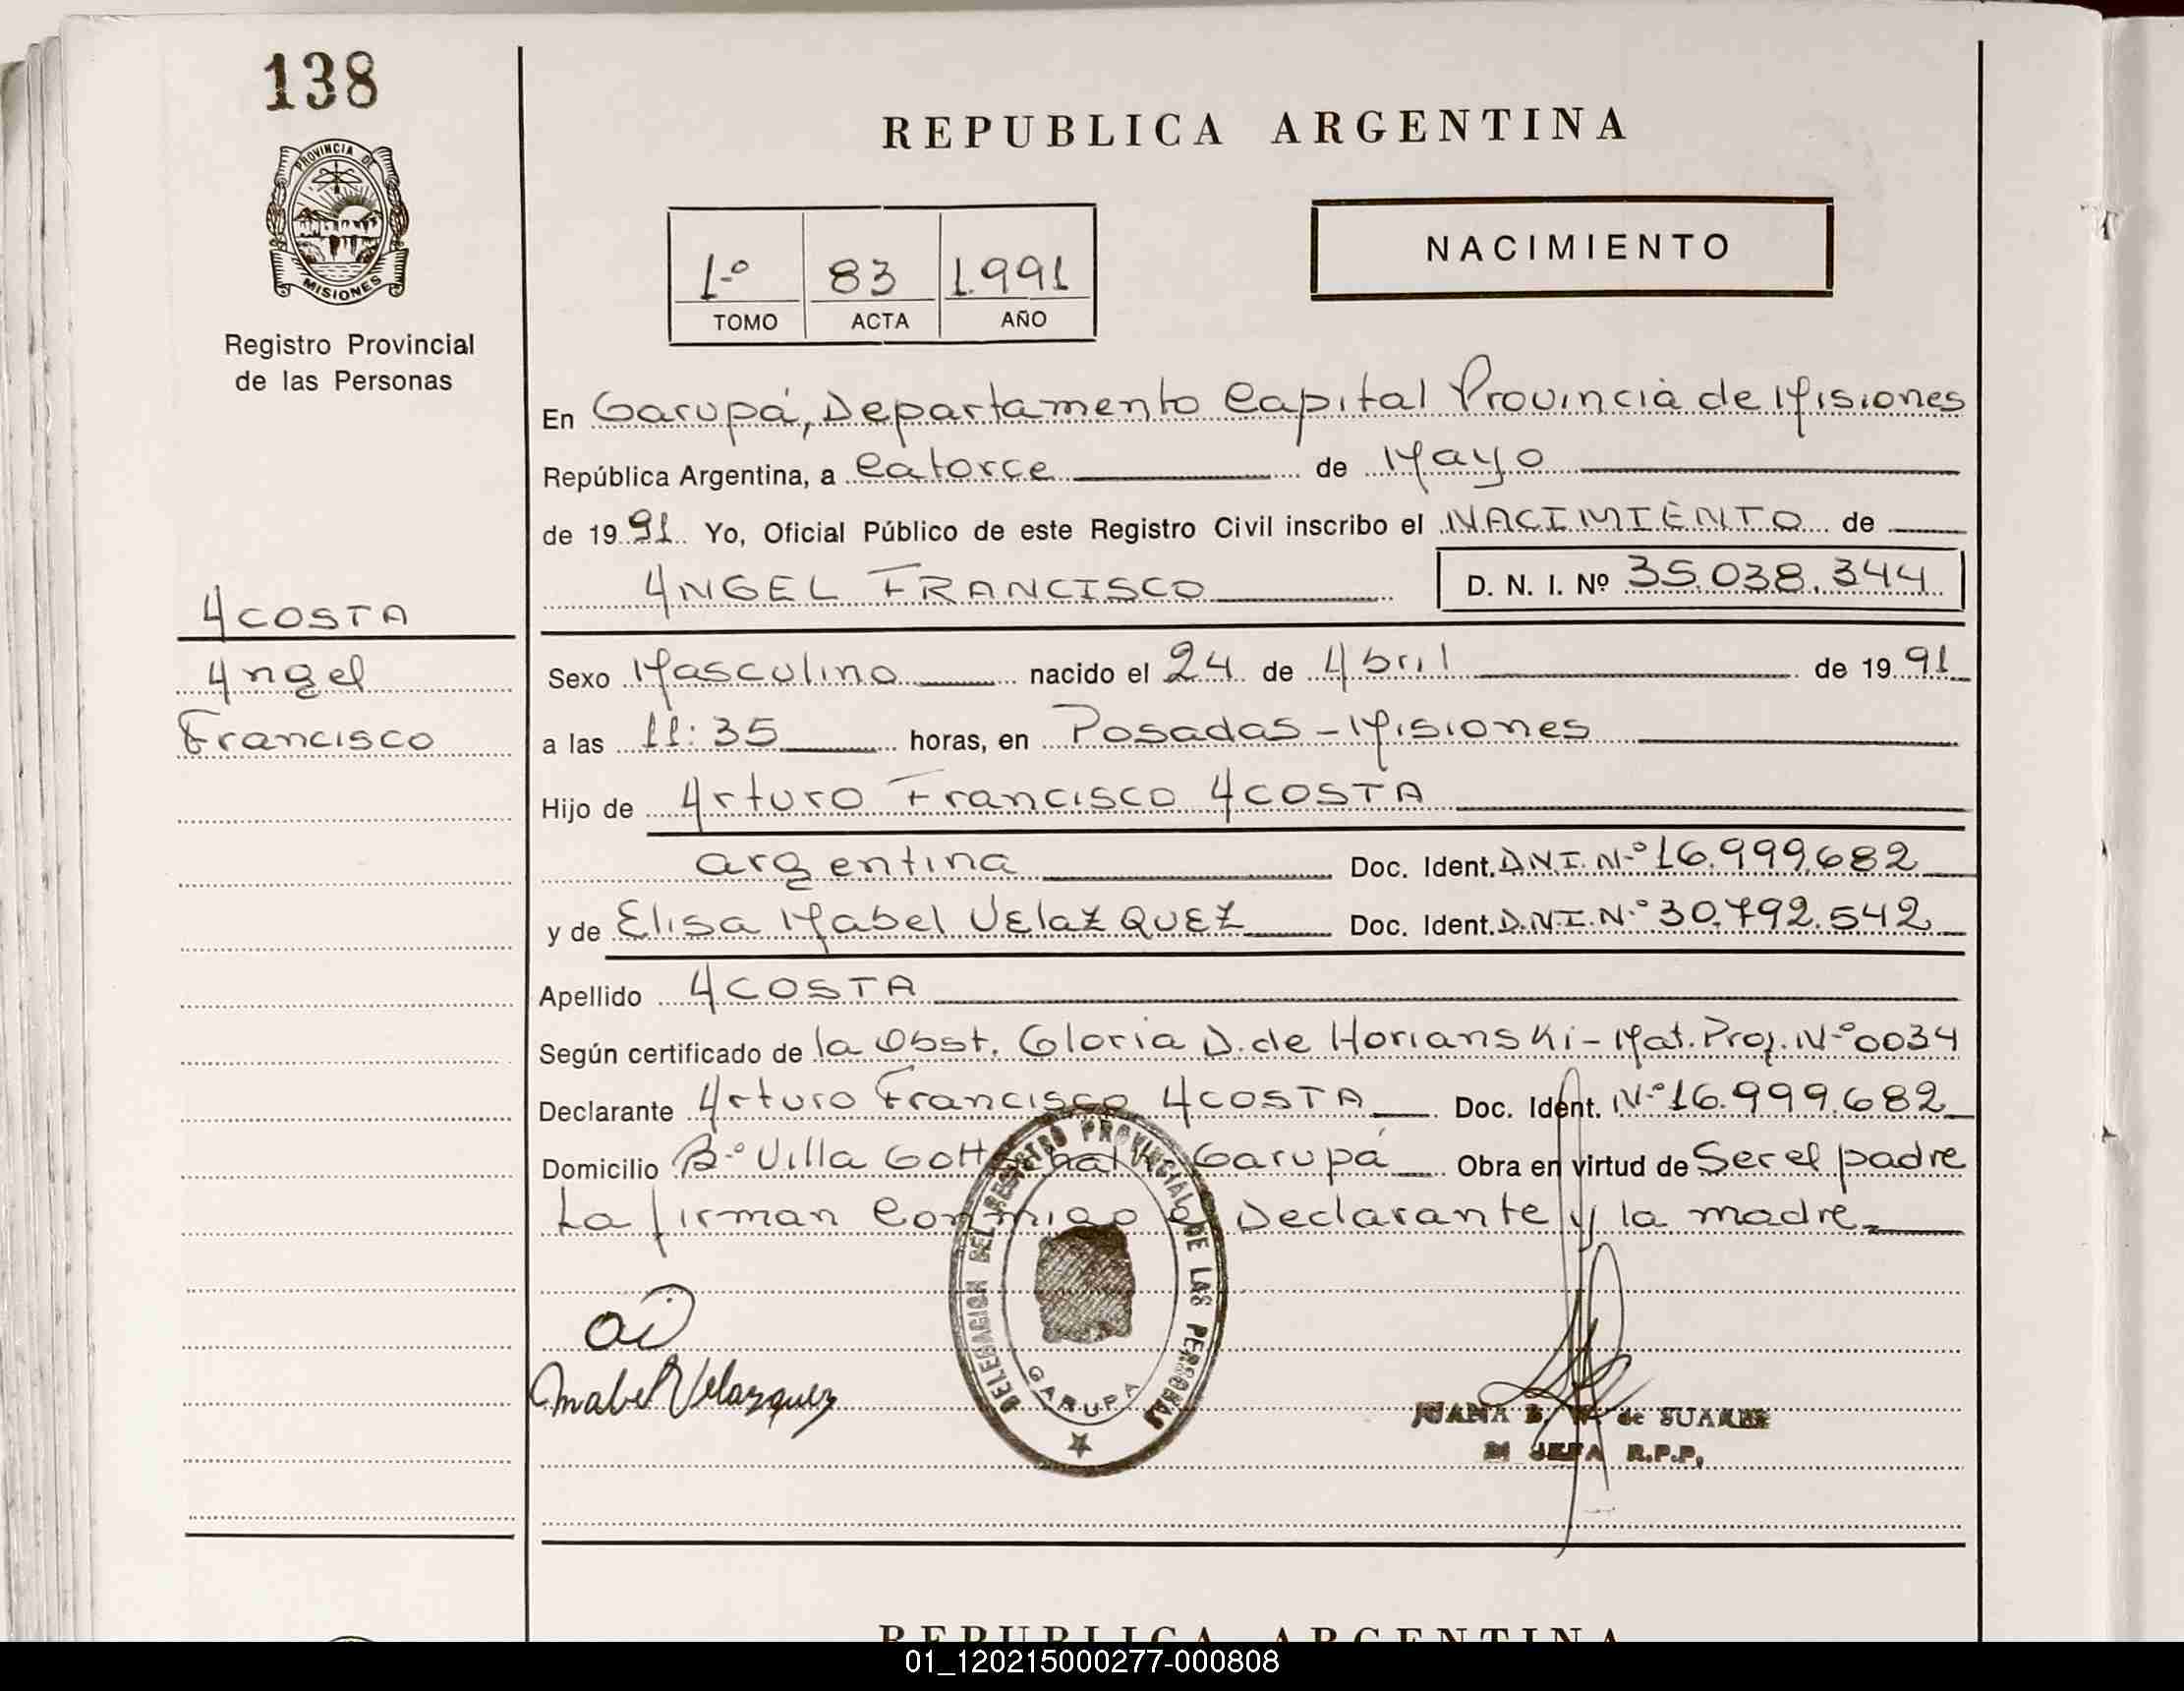 138
PROVINCIA DE
MISIONES
Registro Provincial
de las Personas
REPUBLICA ARGENTINA
1º 83 1.991
TOMO ACTA AÑO
NACIMIENTO
En Garupá, Departamento Capital Provincia de Misiones
República Argentina, a Catorce de Mayo
de 1991 Yo, Oficial Público de este Registro Civil inscribo el NACIMIENTO de
ANGEL FRANCISCO D. N. I. Nº 35.038.344
ACOSTA
Angel
Francisco
Sexo Masculino nacido el 24 de Abril de 1991
a las 11:35 horas, en Posadas - Misiones
Hijo de Arturo Francisco ACOSTA
argentina Doc. Ident. D.N.I. Nº 16.999.682
y de Elisa Mabel VElaZQUEZ Doc. Ident. D.N.I. Nº 30.792.542
Apellido ACOSTA
Según certificado de la Obst. Gloria D. de Horianski - Mat. Prof. Nº 0034
Declarante Arturo Francisco ACOSTA Doc. Ident. Nº 16.999.682
Domicilio Bº Villa Garupá Obra en virtud de Ser el padre
La firman Conmigo el Declarante y la madre
Mabel Velazquez
DELEGACION DEL REGISTRO PROVINCIAL DE LAS PERSONAS
GARUPA
JUANA de SUARES
JEFA R.P.P.
REPUBLICA ARGENTINA
01_120215000277-000808